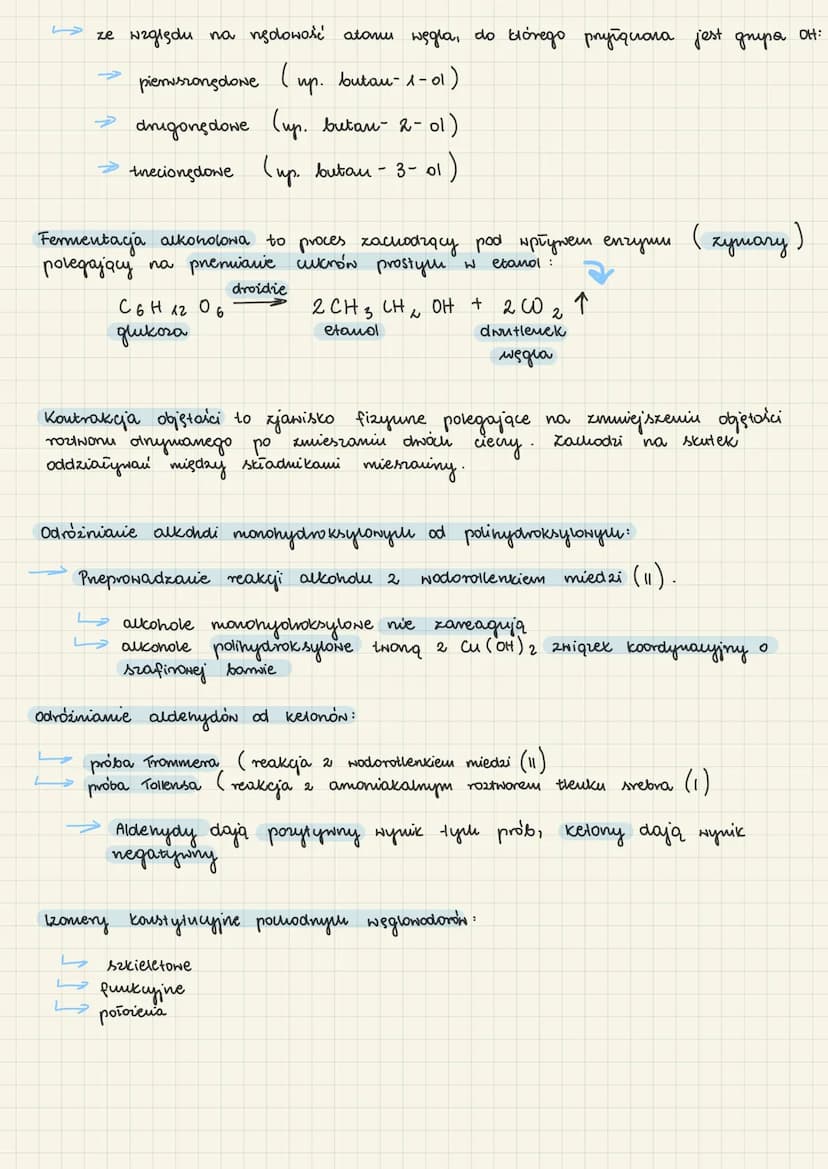 ze względu na rzędowość atomu węgla, do którego przyłączona jest grupa OH:
pierwszorzędowe (np. butan-1-ol)
drugorzędowe (np. butan-2-ol)
trzeciorzędowe (np. butan-3-ol)
Fermentacja alkoholowa to proces zachodzący pod wpływem enzymu (zymazy)
polegający na przemianie cukrów prostych w etanol:
drożdże
C6H12O6 → 2CH3CH2OH + 2CO2↑
glukoza etanol dwutlenek
węgla
Kontrakcja objętości to zjawisko fizyczne polegające na zmniejszeniu objętości
roztworu otrzymanego po zmieszaniu dwóch cieczy. Zachodzi na skutek
oddziaływań między składnikami mieszaniny.
Odróżnianie alkoholi monohydroksylowych od polihydroksylowych:
Przeprowadzanie reakcji alkoholu z wodorotlenkiem miedzi (II).
alkohole monohydroksylowe nie zareagują
alkohole polihydroksylowe tworzą z Cu(OH)2 związek koordynacyjny o
szafirowej barwie
Odróżnianie aldehydów od ketonów:
próba Trommera (reakcja z wodorotlenkiem miedzi (II)
próba Tollensa (reakcja z amoniakalnym roztworem tlenku srebra (I)
Aldehydy dają pozytywny wynik tych prób, ketony dają wynik
negatywny
Izomery konstytucyjne pochodnych węglowodorów:
szkieletowe
funkcyjne
położenia